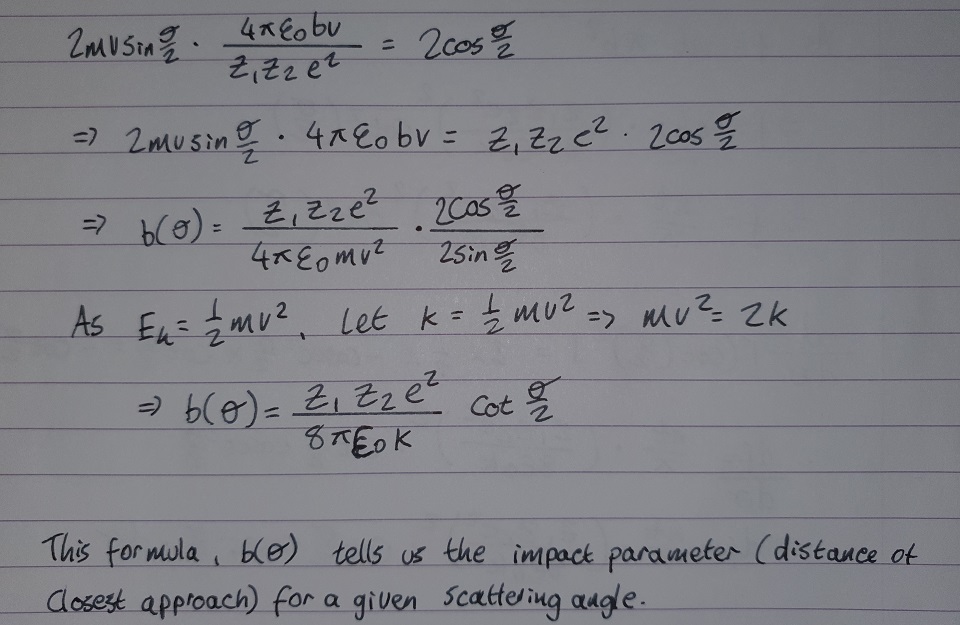 2mv sin θ/2 · 4πε₀bv / Z₁Z₂e² = 2cos θ/2
⇒ 2mv sin θ/2 · 4πε₀bv = Z₁Z₂e² · 2cos θ/2
⇒ b(θ) = Z₁Z₂e² / 4πε₀mv² · 2cos θ/2 / 2sin θ/2
As Eₖ = ½mv², Let k = ½mv² ⇒ mv² = 2k
⇒ b(θ) = Z₁Z₂e² / 8πε₀k cot θ/2
This formula, b(θ) tells us the impact parameter (distance of
closest approach) for a given scattering angle.